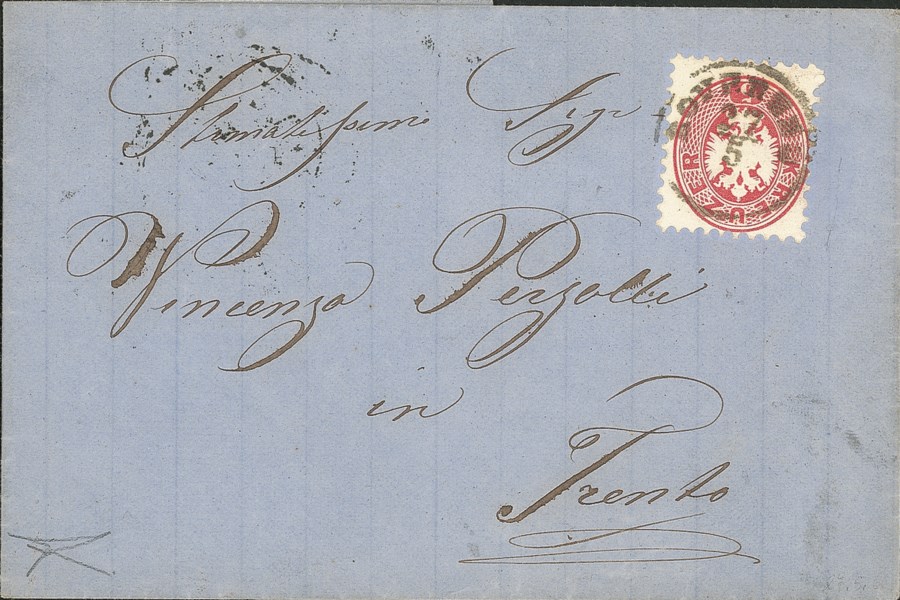 Stimatissimo Sigr
Vincenzo Perzolli
in
Trento
27
5
KREUZER